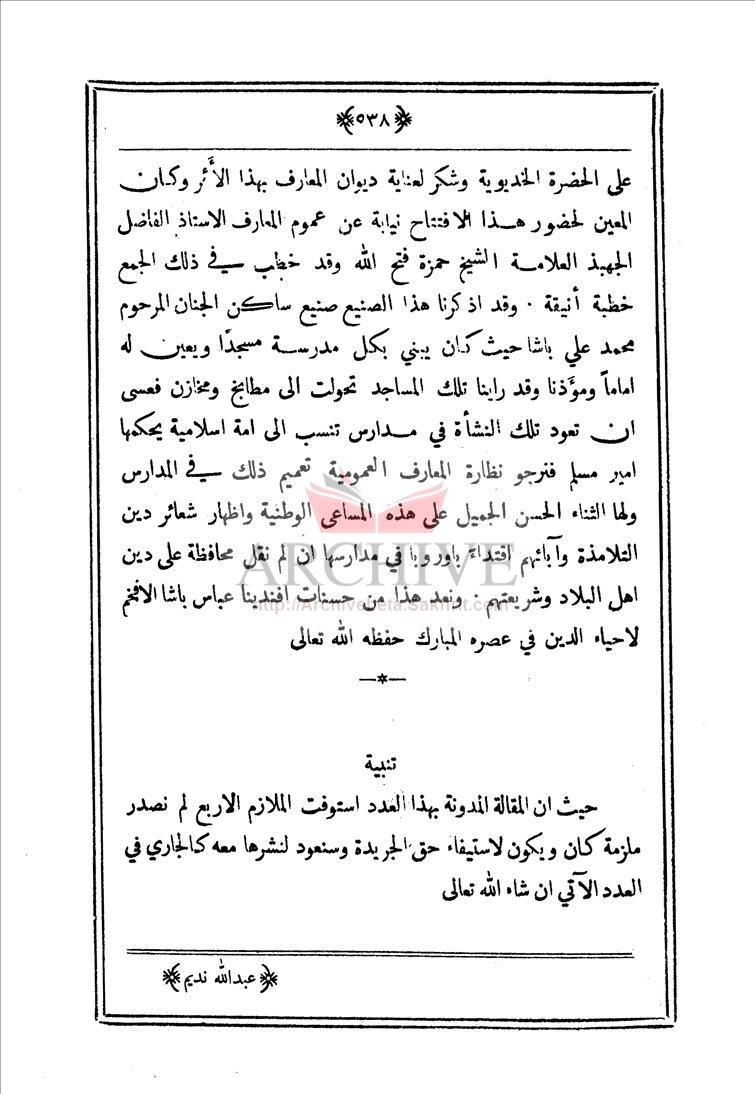 ٥٣٨
على الحضرة الخديوية وشكر لعناية ديوان المعارف بهذا الأَثر وكان
المعين لحضور هذا الافتتاح نيابة عن عموم المعارف الاستاذ الفاضل
الجهبذ العلامة الشيخ حمزة فتح الله وقد خطب في ذلك الجمع
خطبة أنيقة · وقد اذكرنا هذا الصنيع صنيع ساكن الجنان المرحوم
محمد علي باشا حيث كان يبني بكل مدرسة مسجدًا ويعين له
اماماً ومؤذنا وقد راينا تلك المساجد تحولت الى مطابخ ومخازن فعسى
ان تعود تلك النشأة في مدارس تنسب الى امة اسلامية يحكمها
امير مسلم فنرجو نظارة المعارف العمومية تعميم ذلك في المدارس
ولها الثناء الحسن الجميل على هذه المساعى الوطنية واظهار شعائر دين
التلامذة وآبائهم اقتداءً باوروبا في مدارسها ان لم نقل محافظة على دين
اهل البلاد وشريعتهم · ونعد هذا من حسنات افندينا عباس باشا الافخم
لاحياء الدين في عصره المبارك حفظه الله تعالى
ARCHIVE
http://Archivebeta.Sakhrit.com
تنبية
حيث ان المقالة المدونة بهذا العدد استوفت الملازم الاربع لم نصدر
ملزمة كان ويكون لاستيفاء حق الجريدة وسنعود لنشرها معه كالجاري في
العدد الآتي ان شاء الله تعالى
عبدالله نديم